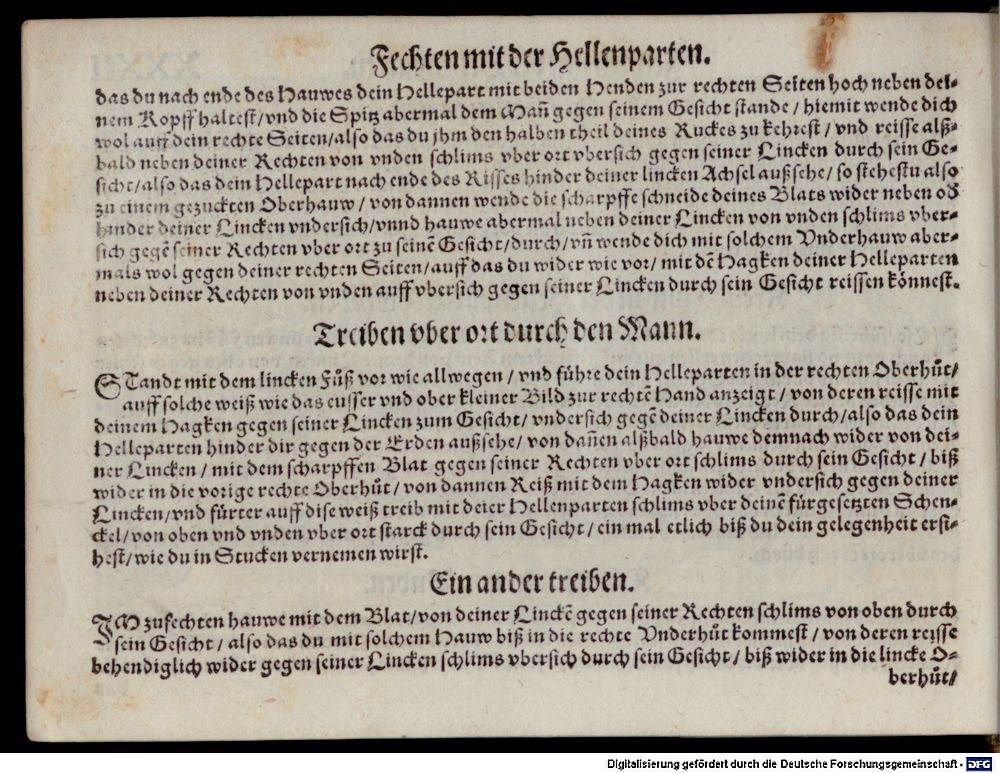 Fechten mit der Hellenparten.
das du nach ende des Hauwes dein Hellepart mit beiden Henden zur rechten Seiten hoch neben dei-
nem Kopff haltest/vnd die Spitz abermal dem Mañ gegen seinem Gesicht stande / hiemit wende dich
wol auff dein rechte Seiten/also das du jhm den halben theil deines Ruckes zu kehrest / vnd reisse alß-
bald neben deiner Rechten von vnden schlims vber ort vbersich gegen seiner Lincken durch sein Ge-
sicht/also das dein Hellepart nach ende des Risses hinder deiner lincken Achsel außsehe/ so stehestu also
zu einem gezuckten Oberhauw / von dannen wende die scharpffe schneide deines Blats wider neben od
hinder deiner Lincken vndersich/vnnd hauwe abermal neben deiner Lincken von vnden schlims vber-
sich gegẽ seiner Rechten vber ort zu seinẽ Gesicht/durch/vñ wende dich mit solchem Vnderhauw aber-
mals wol gegen deiner rechten Seiten/auff das du wider wie vor/ mit dẽ Hagken deiner Helleparten
neben deiner Rechten von vnden auff vbersich gegen seiner Lincken durch sein Gesicht reissen könnest.
Treiben vber ort durch den Mann.
STandt mit dem lincken Fůß vor wie allwegen / vnd führe dein Helleparten in der rechten Oberhůt/
auff solche weiß wie das eusser vnd ober kleiner Bild zur rechtẽ Hand anzeigt / von deren reisse mit
deinem Hagken gegen seiner Lincken zum Gesicht / vndersich gegẽ deiner Lincken durch/also das dein
Helleparten hinder dir gegen der Erden außsehe/ von dañen alßbald hauwe demnach wider von dei-
ner Lincken / mit dem scharpffen Blat gegen seiner Rechten vber ort schlims durch sein Gesicht / biß
wider in die vorige rechte Oberhůt/ von dannen Reiß mit dem Hagken wider vndersich gegen deiner
Lincken/vnd fürter auff dise weiß treib mit deier Hellenparten schlims vber deinẽ fürgesetzten Schen-
ckel/von oben vnd vnden vber ort starck durch sein Gesicht / ein mal etlich biß du dein gelegenheit ersi-
hest/ wie du in Stucken vernemen wirst.
Ein ander treiben.
IM zufechten hauwe mit dem Blat/von deiner Linckẽ gegen seiner Rechten schlims von oben durch
sein Gesicht / also das du mit solchem Hauw biß in die rechte Vnderhůt kommest / von deren reisse
behendiglich wider gegen seiner Lincken schlims vbersich durch sein Gesicht / biß wider in die lincke O-
berhůt/
Digitalisierung gefördert durch die Deutsche Forschungsgemeinschaft - DFG